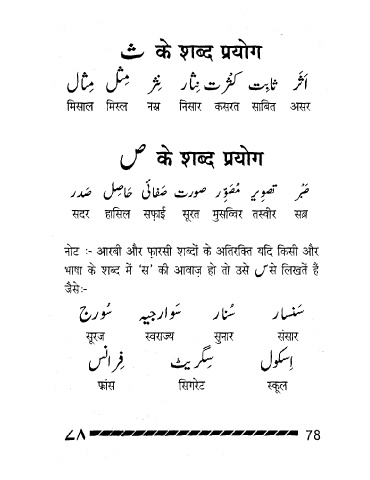 ث के शब्द प्रयोग
اَثَر ثابِت کَثرَت نِثار نثر مِثل مِثال
मिसाल मिस्ल नस्र निसार कसरत साबित असर
ص के शब्द प्रयोग
صَبر تصوِیر مُصَوِّر صورت صَفائی حَاصِل صَدر
सदर हासिल सफ़ाई सूरत मुसव्विर तस्वीर सब्र
नोट :- आरबी और फ़ारसी शब्दों के अतिरक्ति यदि किसी और
भाषा के शब्द में 'स' की आवाज़ हो तो उसे س से लिखतें हैं
जैसेः-
سَنسار سُنار سَوارجیہ سُورج
सूरज स्वराज्य सुनार संसार
اِسکول سِگریٹ فِرانس
फ्रांस सिगरेट स्कूल
۷۸ 78